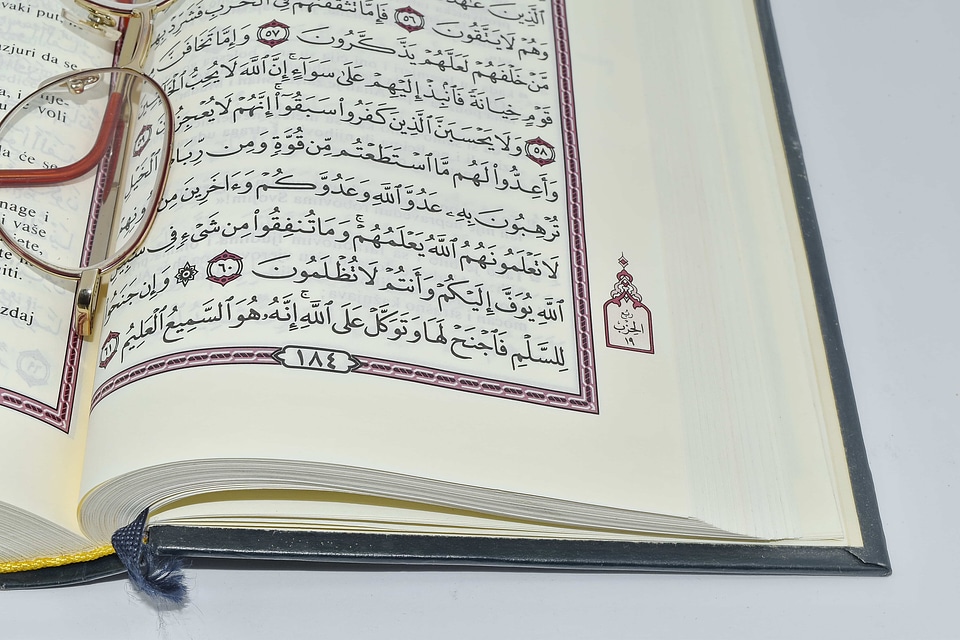 vaki put
da se
voli
će se
i
vaše
ٱلَّذِينَ
وَهُمْ لَا يَتَّقُونَ ٥٦ فَإِمَّا تَثْقَفَنَّهُمْ فِى ٱلْحَرْبِ فَشَرِّدْ بِهِم
مَّنْ خَلْفَهُمْ لَعَلَّهُمْ يَذَّكَّرُونَ ٥٧ وَإِمَّا تَخَافَنَّ
قَوْمٍ خِيَانَةً فَٱنۢبِذْ إِلَيْهِمْ عَلَىٰ سَوَآءٍ ۚ إِنَّ ٱللَّهَ لَا يُحِبُّ
٥٨ وَلَا يَحْسَبَنَّ ٱلَّذِينَ كَفَرُوا۟ سَبَقُوٓا۟ ۚ إِنَّهُمْ لَا يُعْجِزُونَ
وَأَعِدُّوا۟ لَهُم مَّا ٱسْتَطَعْتُم مِّن قُوَّةٍ وَمِن رِّبَاطِ ٱلْخَيْلِ
تُرْهِبُونَ بِهِۦ عَدُوَّ ٱللَّهِ وَعَدُوَّكُمْ وَءَاخَرِينَ مِن دُونِهِمْ
لَا تَعْلَمُونَهُمُ ٱللَّهُ يَعْلَمُهُمْ ۚ وَمَا تُنفِقُوا۟ مِن شَىْءٍ فِى سَبِيلِ
ٱللَّهِ يُوَفَّ إِلَيْكُمْ وَأَنتُمْ لَا تُظْلَمُونَ ٦٠ ۞ وَإِن جَنَحُوا۟
لِلسَّلْمِ فَٱجْنَحْ لَهَا وَتَوَكَّلْ عَلَى ٱللَّهِ ۚ إِنَّهُۥ هُوَ ٱلسَّمِيعُ ٱلْعَلِيمُ ٦١
١٨٤
ربع
الحزب
١٩